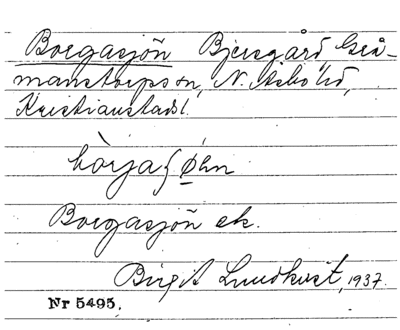 Borgasjön Bjersgård, Grå-
manstorps sn, N. Åsbo hd,
Kristianstads l.
Borgasjön ek.
Birgit Lundkvist, 1937.
Nr 5495.